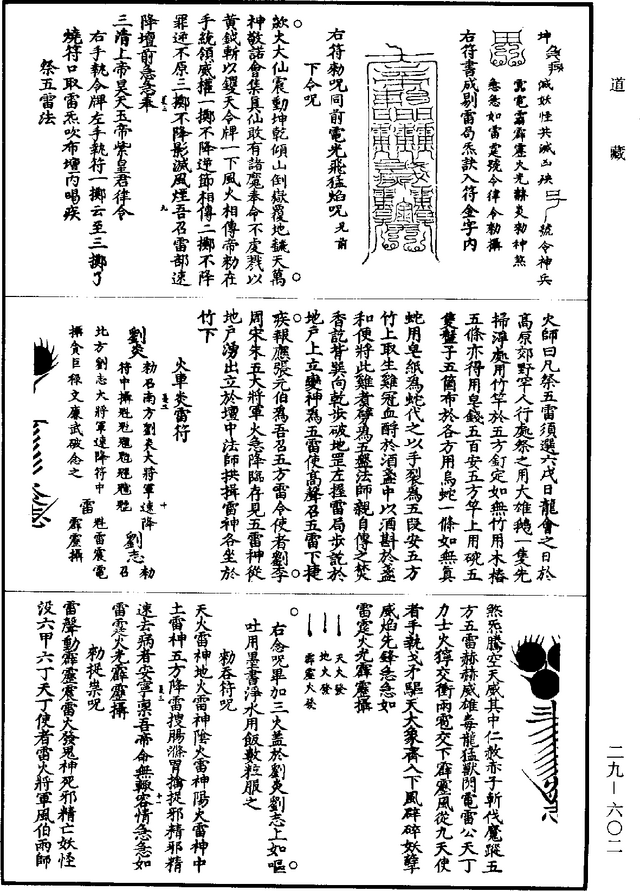 道藏
坤 滅妖怪共滅凶殃 號令神兵
霹電霸霹靂火光赫炎勑神煞
急急如雷霆號令律令勑攝
右符書成剔雷局炁訣入符金字內
右符勑呪同前電光飛猛焰呪 見前
下令呪
歘火大仙震動坤乾傾山倒嶽覆地飜天萬
神敬諾會集真仙敢有諸魔奉命不虔戮以
黃鉞斬以鍰天令牌一下風火相傳帝勑在
手統領威權一擲不降逆節相傳二擲不降
罪逆不原三擲不降影滅風煙吾召雷部速
降壇前急急奉
三清上帝昊天五帝紫皇君律令
右手執令牌左手執符一擲云至三擲了
燒符口取雷炁吹布壇內喝疾
祭五雷法
火師曰凡祭五雷須選六戌日龍會之日於
高原郊野罕人行處祭之用大雄鵝一隻先
掃淨處用竹竿於五方釘定如無竹用木樁
五條亦得用皂錢五百安五方竿上用硯五
隻盤子五箇布於各方用烏蛇一條如無真
蛇用皂紙為蛇代之以手裂為五段安五方
竹上取生雞冠血酹於酒盞中以酒斟於盞
和使將此雞煮劈為五盤法師親自傳之焚
香訖背巽向乾步破地罡左握雷局步訖於
地戶上立變神為五雷使高聲召五雷下捷
疾報應張元伯為吾召五方雷令使者劉李
周宋朱五大將軍火急降臨存見五雷神從
地戶湧出立於壇中法師拱揖雷神各坐於
竹下
火車炎雷符
劉炎 勑召南方劉炎大將軍速降
符中攝
劉志 勑召
北方劉志大將軍速降符中 雷 雷震電
攝貪巨祿文廉武破念之 霹靂攝
煞炁騰空天威其中仁救赤子斬伐魔蹤五
方五雷赫赫威雄毒龍猛獸閃電雷公天丁
力士火獐交衝雨雹交下霹靂風從九天使
者手執戈矛驅天大象齊入下風碎碎妖孽
威焰先鋒急急如
雷霆火光霹靂攝
天火發
地火發
霹靂火發
右念呪畢加三火蓋於劉炎劉志上如嘔
吐用墨書淨水用飯數粒服之
勑吞符呪
天火雷神地火雷神陰火雷神陽火雷神中
土雷神五方降雷搜腸滌胃擒捉邪精邪精
速去病者安寧稟吾帝命無輒容情急急如
雷霆火光霹靂攝
勑捉祟呪
雷聲動霹靂震雷火發鬼神死邪精亡妖怪
沒六甲六丁天丁使者雷火將軍風伯雨師
二九—六〇二